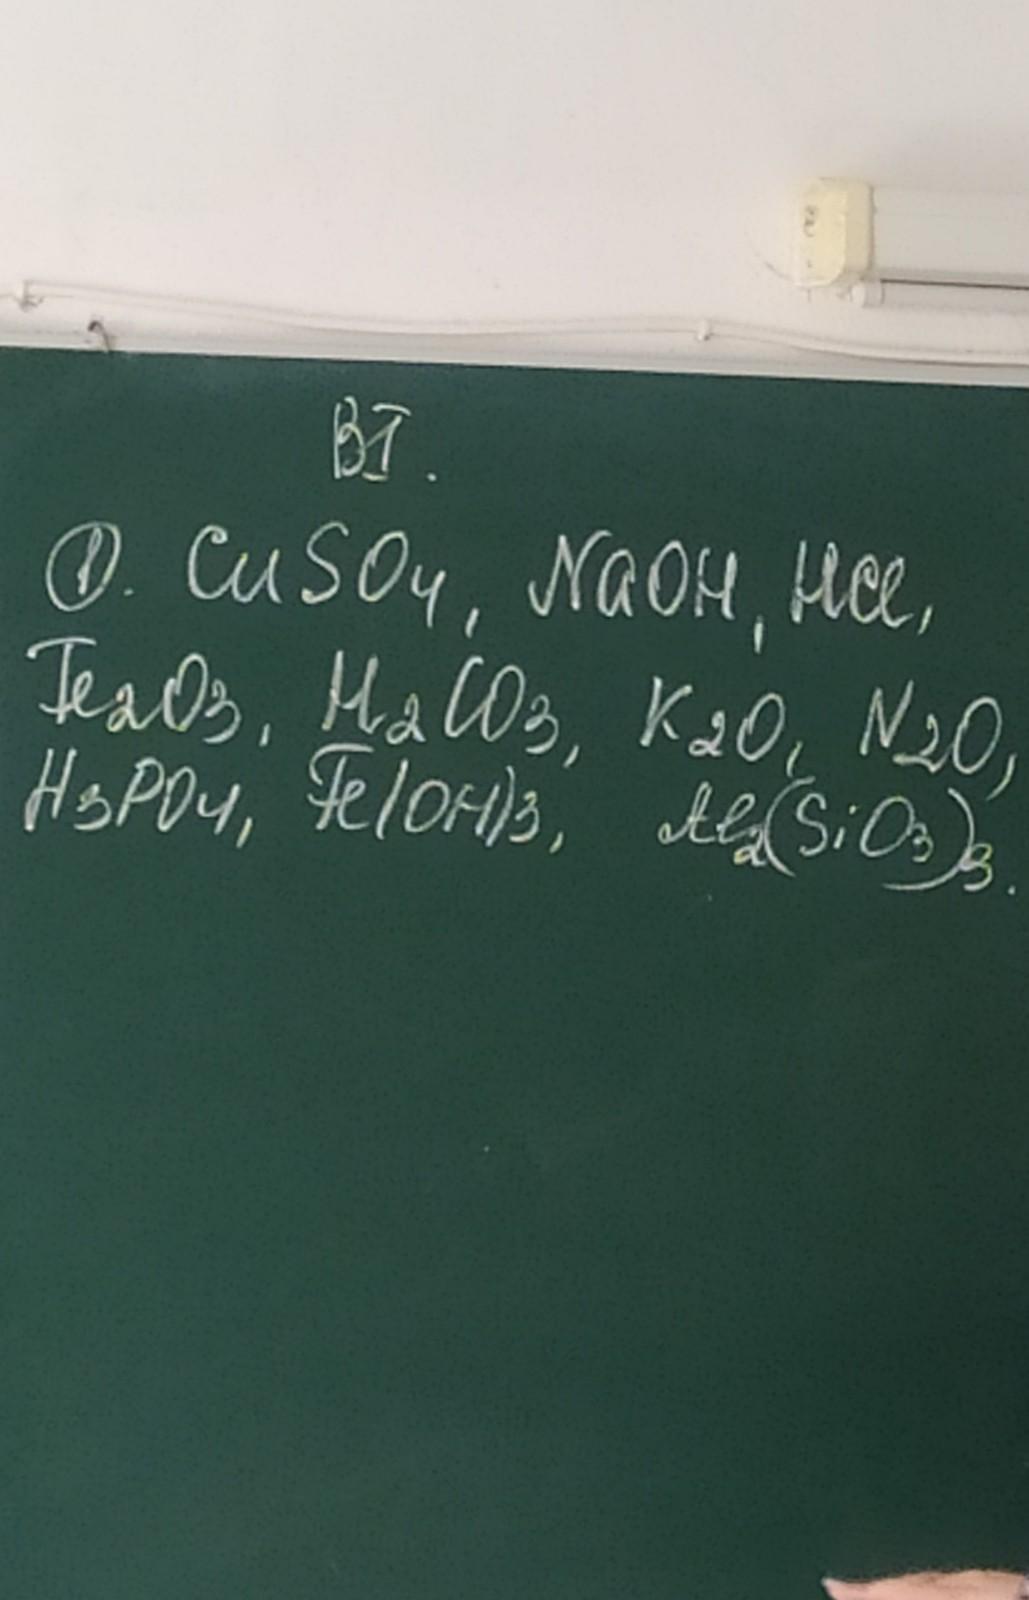 BI.
①. CuSO4, NaOH, HCl,
Fe2O3, H2CO3, K2O, N2O,
H3PO4, Fe(OH)3, Al2(SiO3)3.